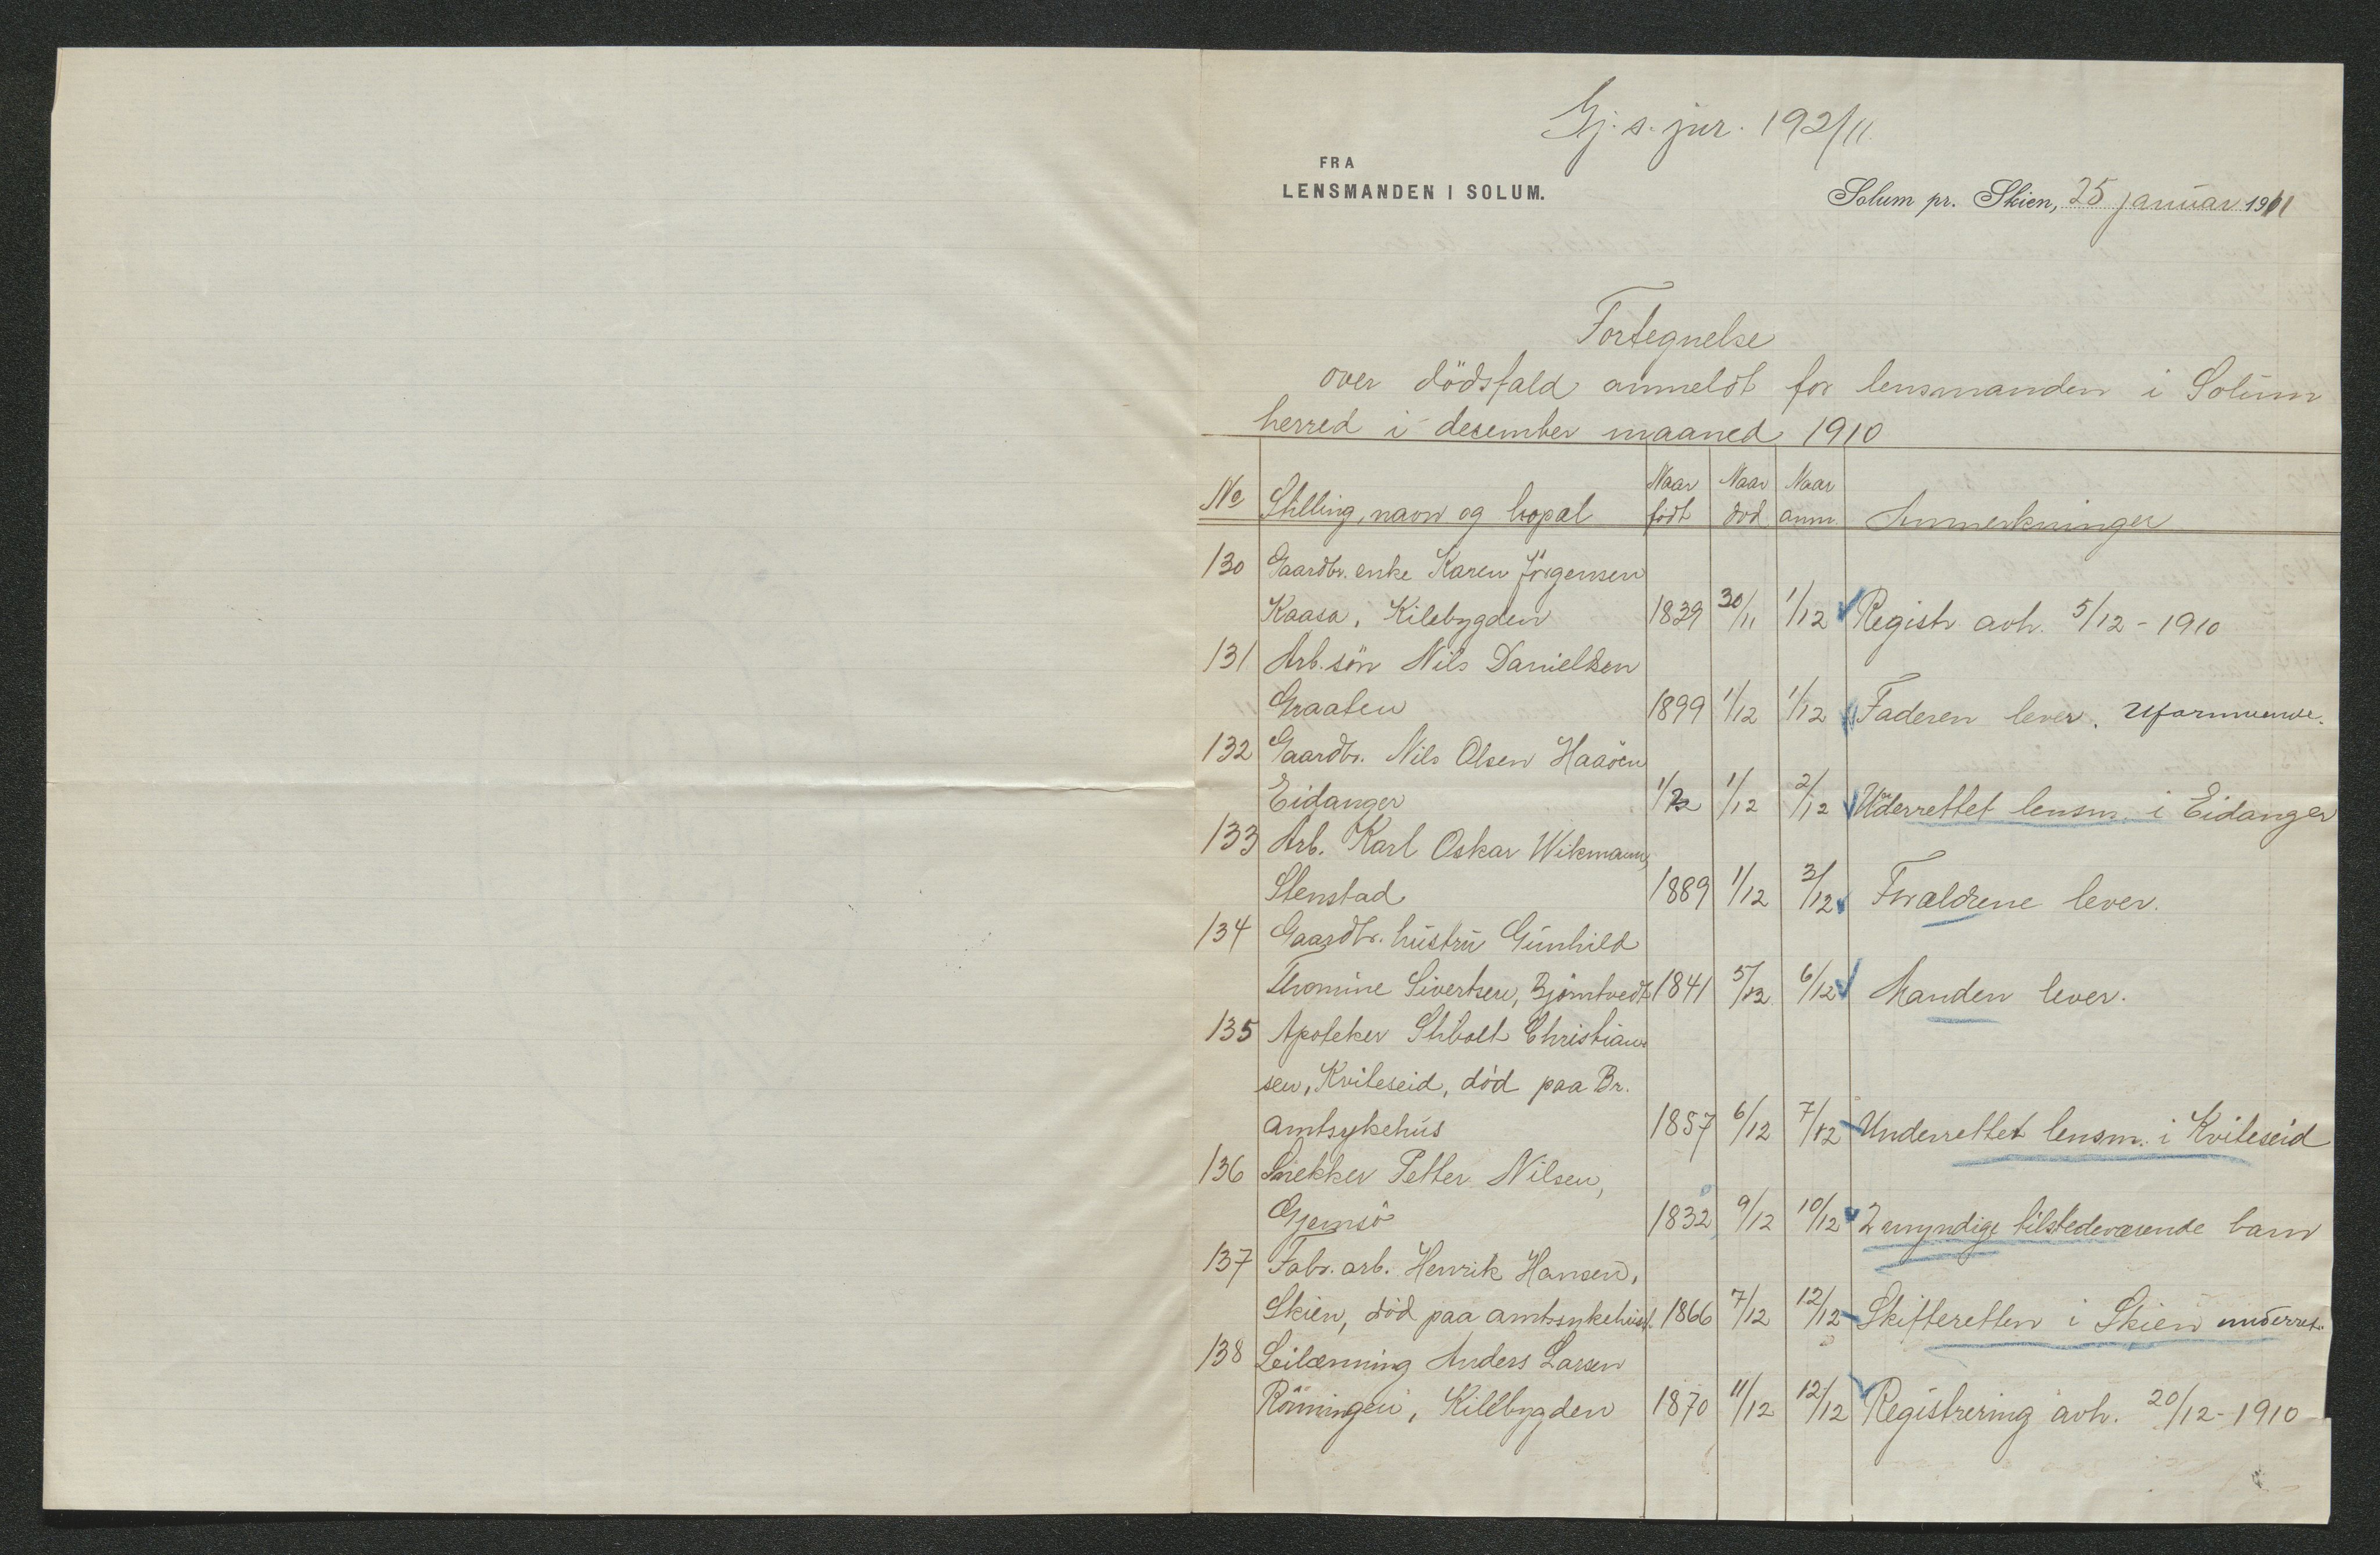 Gj. s. jnr. 192/11.
FRA
LENSMANDEN I SOLUM.
Solum pr. Skien, 25 januar 1911
Fortegnelse
over dödsfald anmeldt for lensmanden i Solum
herred i desember maaned 1910
No Stilling, navn og bopæl Naar födt Naar död Naar anm. Anmerkninger
130 Gaardbr. enke Karen Jörgensen
Kaasa, Kilebygden 1839 30/11 1/12 Registr avh. 5/12 - 1910
131 Arb. sön Nils Danielsen
Graaten 1899 1/12 1/12 Faderen lever. Uformuende.
132 Gaardbr. Nils Olsen Haaöen
Eidanger 1/12 2/12 Underrettet lensm. i Eidanger
133 Arb. Karl Oskar Wikmann,
Stenstad 1889 1/12 3/12 Forældrene lever.
134 Gaardbr. hustru Gunhild
Thomine Sivertsen, Bjömtvedt 1841 5/12 6/12 Manden lever.
135 Apoteker Stibolt Christian-
sen, Kviteseid, död paa Br.
amtsykehus 1857 6/12 7/12 Underrettet lensm. i Kviteseid
136 Snekker Petter Nilsen,
Gjemsö 1832 9/12 10/12 2 myndige tilstedeværende barn
137 Fabr. arb. Henrik Hansen,
Skien, död paa amtssykehuset. 1866 7/12 12/12 Skifteretten i Skien underret.
138 Leilænning Anders Larsen
Rönningen, Kilebygden 1870 11/12 12/12 Registrering avh. 20/12 - 1910